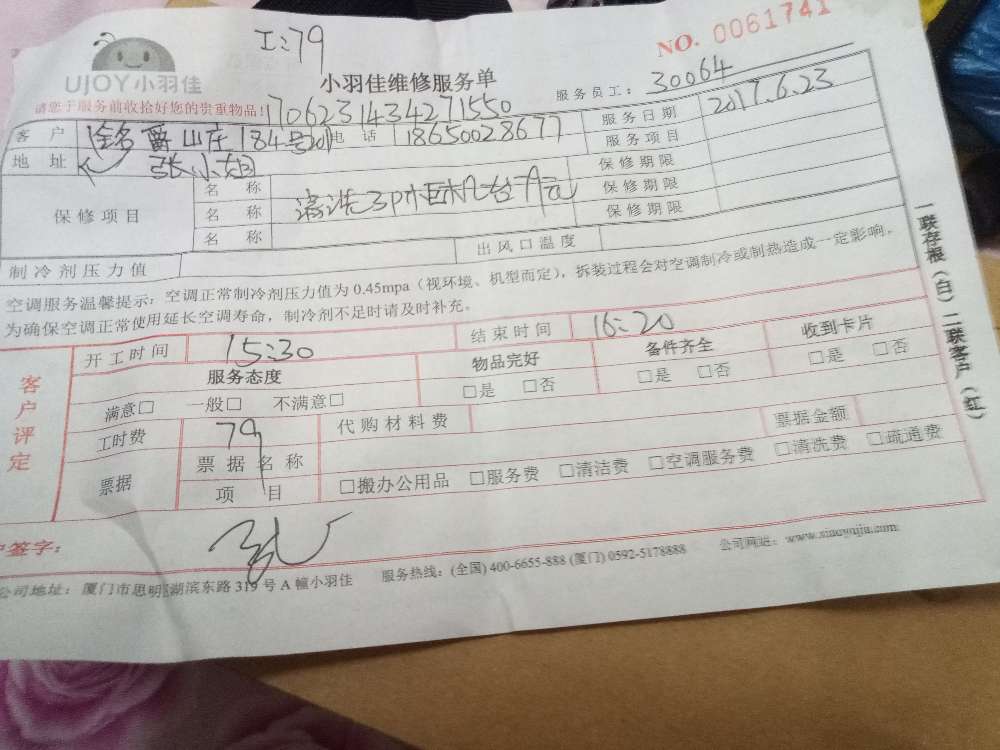 工:79
NO. 0061741
UJOY小羽佳
小羽佳维修服务单
服务员工: 30064
请您于服务前收拾好您的贵重物品!
706231434271550
客户 爵山庄184号201 电话 18650028677 服务日期 2017.6.23
地址 张小姐 服务项目
保修项目 名称 保修期限
名称 清洗3P柜机1台 保修期限
名称 保修期限
制冷剂压力值 出风口温度
空调服务温馨提示:空调正常制冷剂压力值为 0.45mpa (视环境、机型而定),拆装过程会对空调制冷或制热造成一定影响。
为确保空调正常使用延长空调寿命,制冷剂不足时请及时补充。
客户评定
开工时间 15:30 结束时间 16:20
服务态度 物品完好 备件齐全 收到卡片
满意□ 一般□ 不满意□ □是 □否 □是 □否 □是 □否
工时费 79 代购材料费 票据金额
票据 票据名称
项目 □搬办公用品 □服务费 □清洁费 □空调服务费 □清洗费 □疏通费
户签字: 张
公司地址:厦门市思明区湖滨东路 319 号 A 幢小羽佳 服务热线:(全国) 400-6655-888 (厦门) 0592-5178888 公司网址:www.xiaoyujia.com
一联存根(白) 二联客户(红)